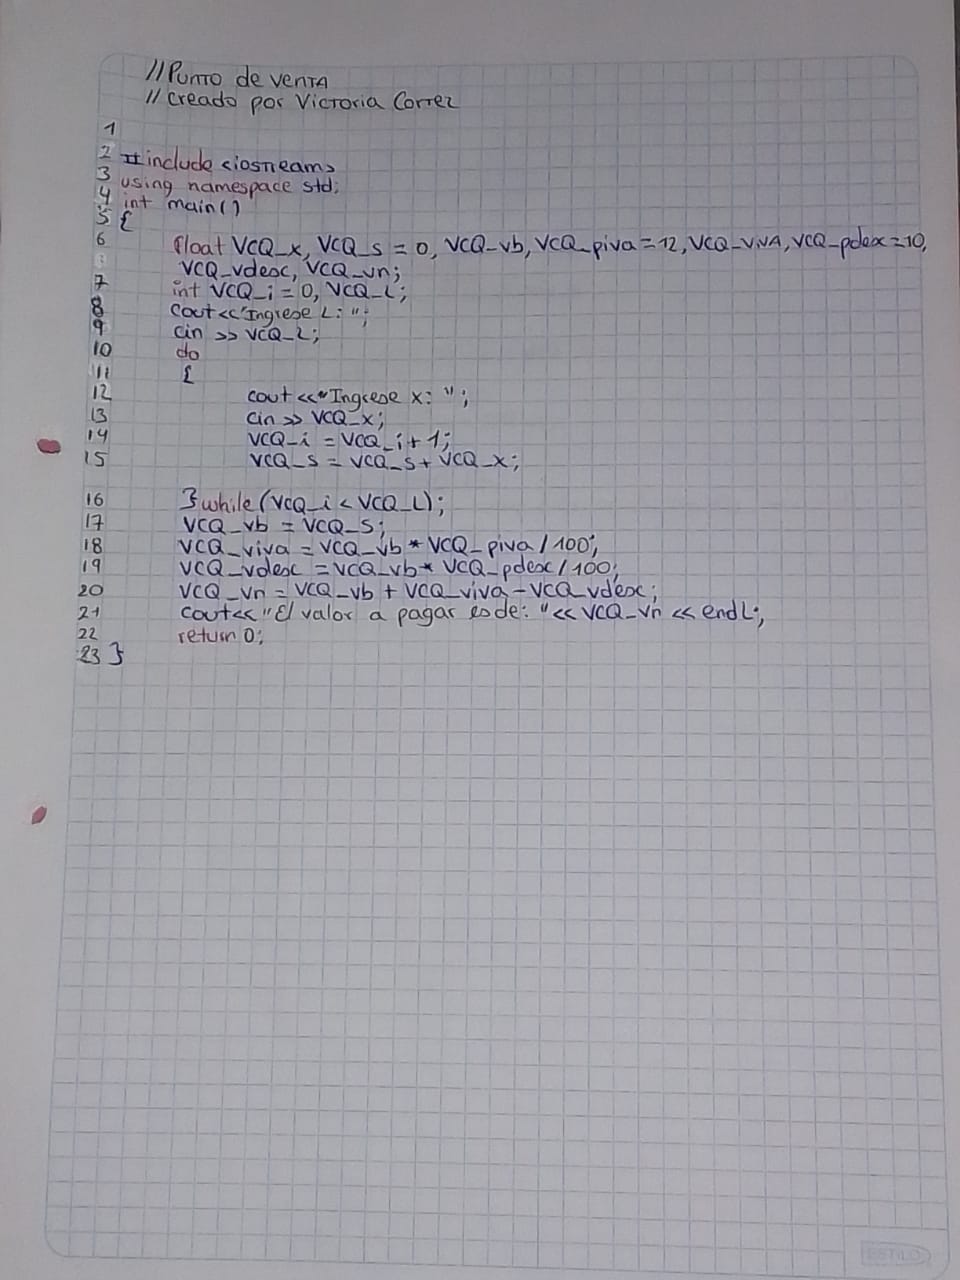 //Punto de venta
//creado por Victoria Correz
1
2 #include <iostream>
3 using namespace std;
4 int main()
5 {
6 float VCQ_x, VCQ_s = 0, VCQ_vb, VCQ_piva = 12, VCQ_vivA, VCQ_pdesc = 10,
: VCQ_vdesc, VCQ_vn;
7 int VCQ_i = 0, VCQ_L;
8 cout<<"Ingrese L: ";
9 cin >> VCQ_L;
10 do
11 {
12 cout <<"Ingrese x: ";
13 cin >> VCQ_x;
14 VCQ_i = VCQ_i + 1;
15 VCQ_s = VCQ_s + VCQ_x;
16 }while (VCQ_i < VCQ_L);
17 VCQ_vb = VCQ_s;
18 VCQ_viva = VCQ_vb * VCQ_piva / 100;
19 VCQ_vdesc = VCQ_vb * VCQ_pdesc / 100;
20 VCQ_vn = VCQ_vb + VCQ_viva - VCQ_vdesc;
21 cout<< "El valor a pagar es de: " << VCQ_vn << endL;
22 return 0;
23 }
ESTILO